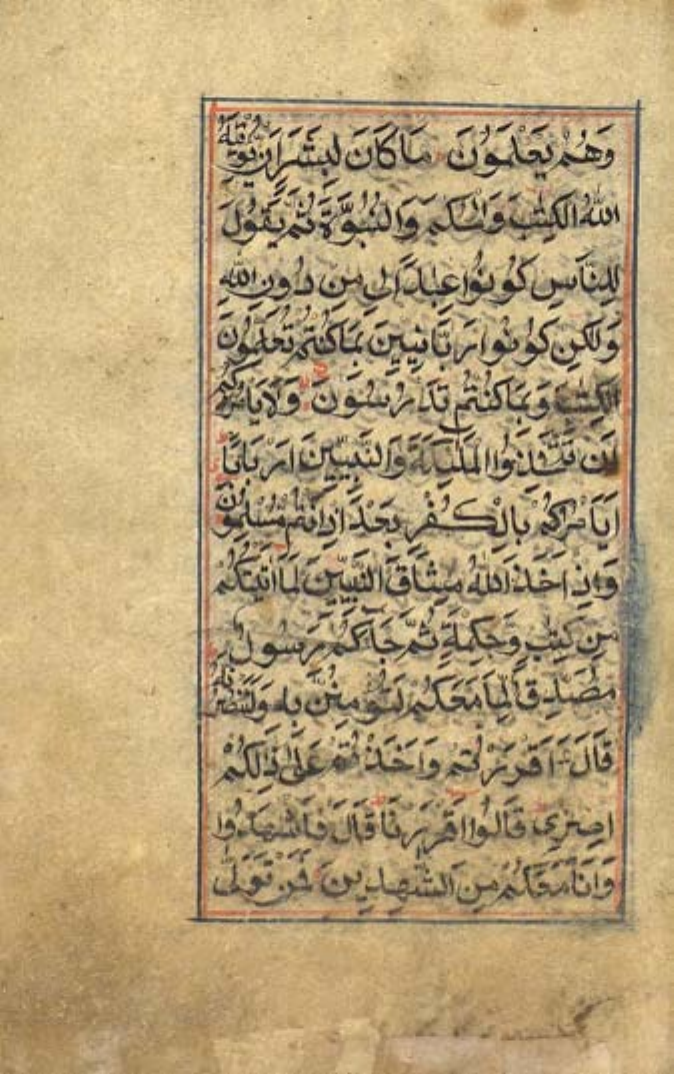 وَهُمْ يَعْلَمُونَ مَا كَانَ لِبَشَرٍ اَنْ يُؤْتِيَهُ
اللّٰهُ الْكِتٰبَ وَالْحُكْمَ وَالنُّبُوَّةَ ثُمَّ يَقُولَ
لِلنَّاسِ كُونُوا عِبَادًا لِي مِنْ دُونِ اللّٰهِ
وَلٰكِنْ كُونُوا رَبَّانِيِّينَ بِمَا كُنْتُمْ تُعَلِّمُونَ
الْكِتٰبَ وَبِمَا كُنْتُمْ تَدْرُسُونَ وَلَا يَاْمُرَكُمْ
اَنْ تَتَّخِذُوا الْمَلٰئِكَةَ وَالنَّبِيِّينَ اَرْبَابًا
اَيَاْمُرُكُمْ بِالْكُفْرِ بَعْدَ اِذْ اَنْتُمْ مُسْلِمُونَ
وَاِذْ اَخَذَ اللّٰهُ مِيثَاقَ النَّبِيِّينَ لَمَا اٰتَيْتُكُمْ
مِنْ كِتٰبٍ وَحِكْمَةٍ ثُمَّ جَآءَكُمْ رَسُولٌ
مُصَدِّقٌ لِمَا مَعَكُمْ لَتُؤْمِنُنَّ بِهِ وَلَتَنْصُرُنَّهُ
قَالَ ءَاَقْرَرْتُمْ وَاَخَذْتُمْ عَلٰى ذٰلِكُمْ
اِصْرِي قَالُوا اَقْرَرْنَا قَالَ فَاشْهَدُوا
وَاَنَا مَعَكُمْ مِنَ الشّٰهِدِينَ فَمَنْ تَوَلّٰى